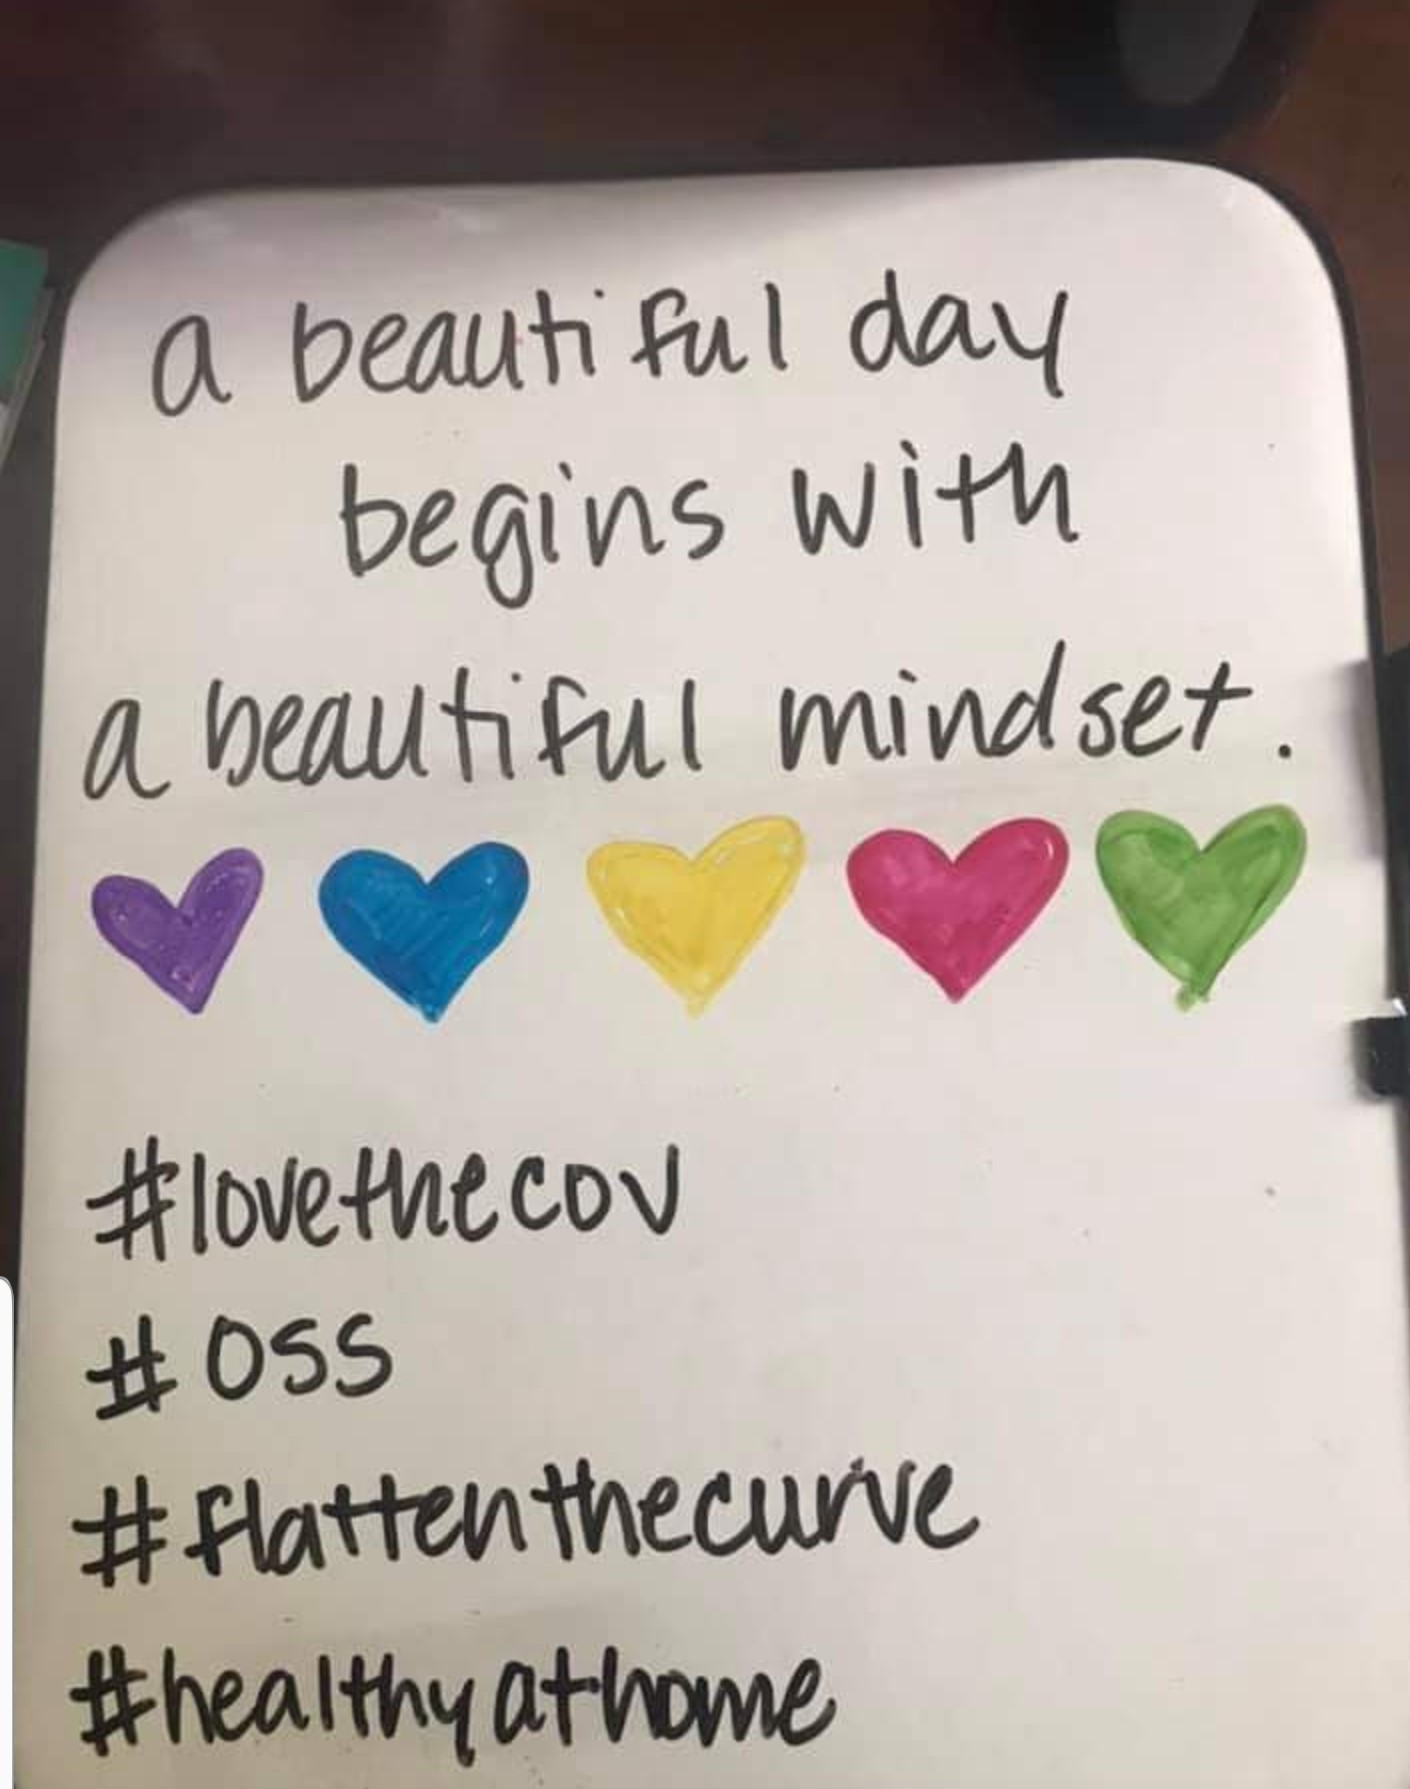 a beautiful day
begins with
a beautiful mindset.
#lovethecov
# OSS
#flattenthecurve
#healthyathome